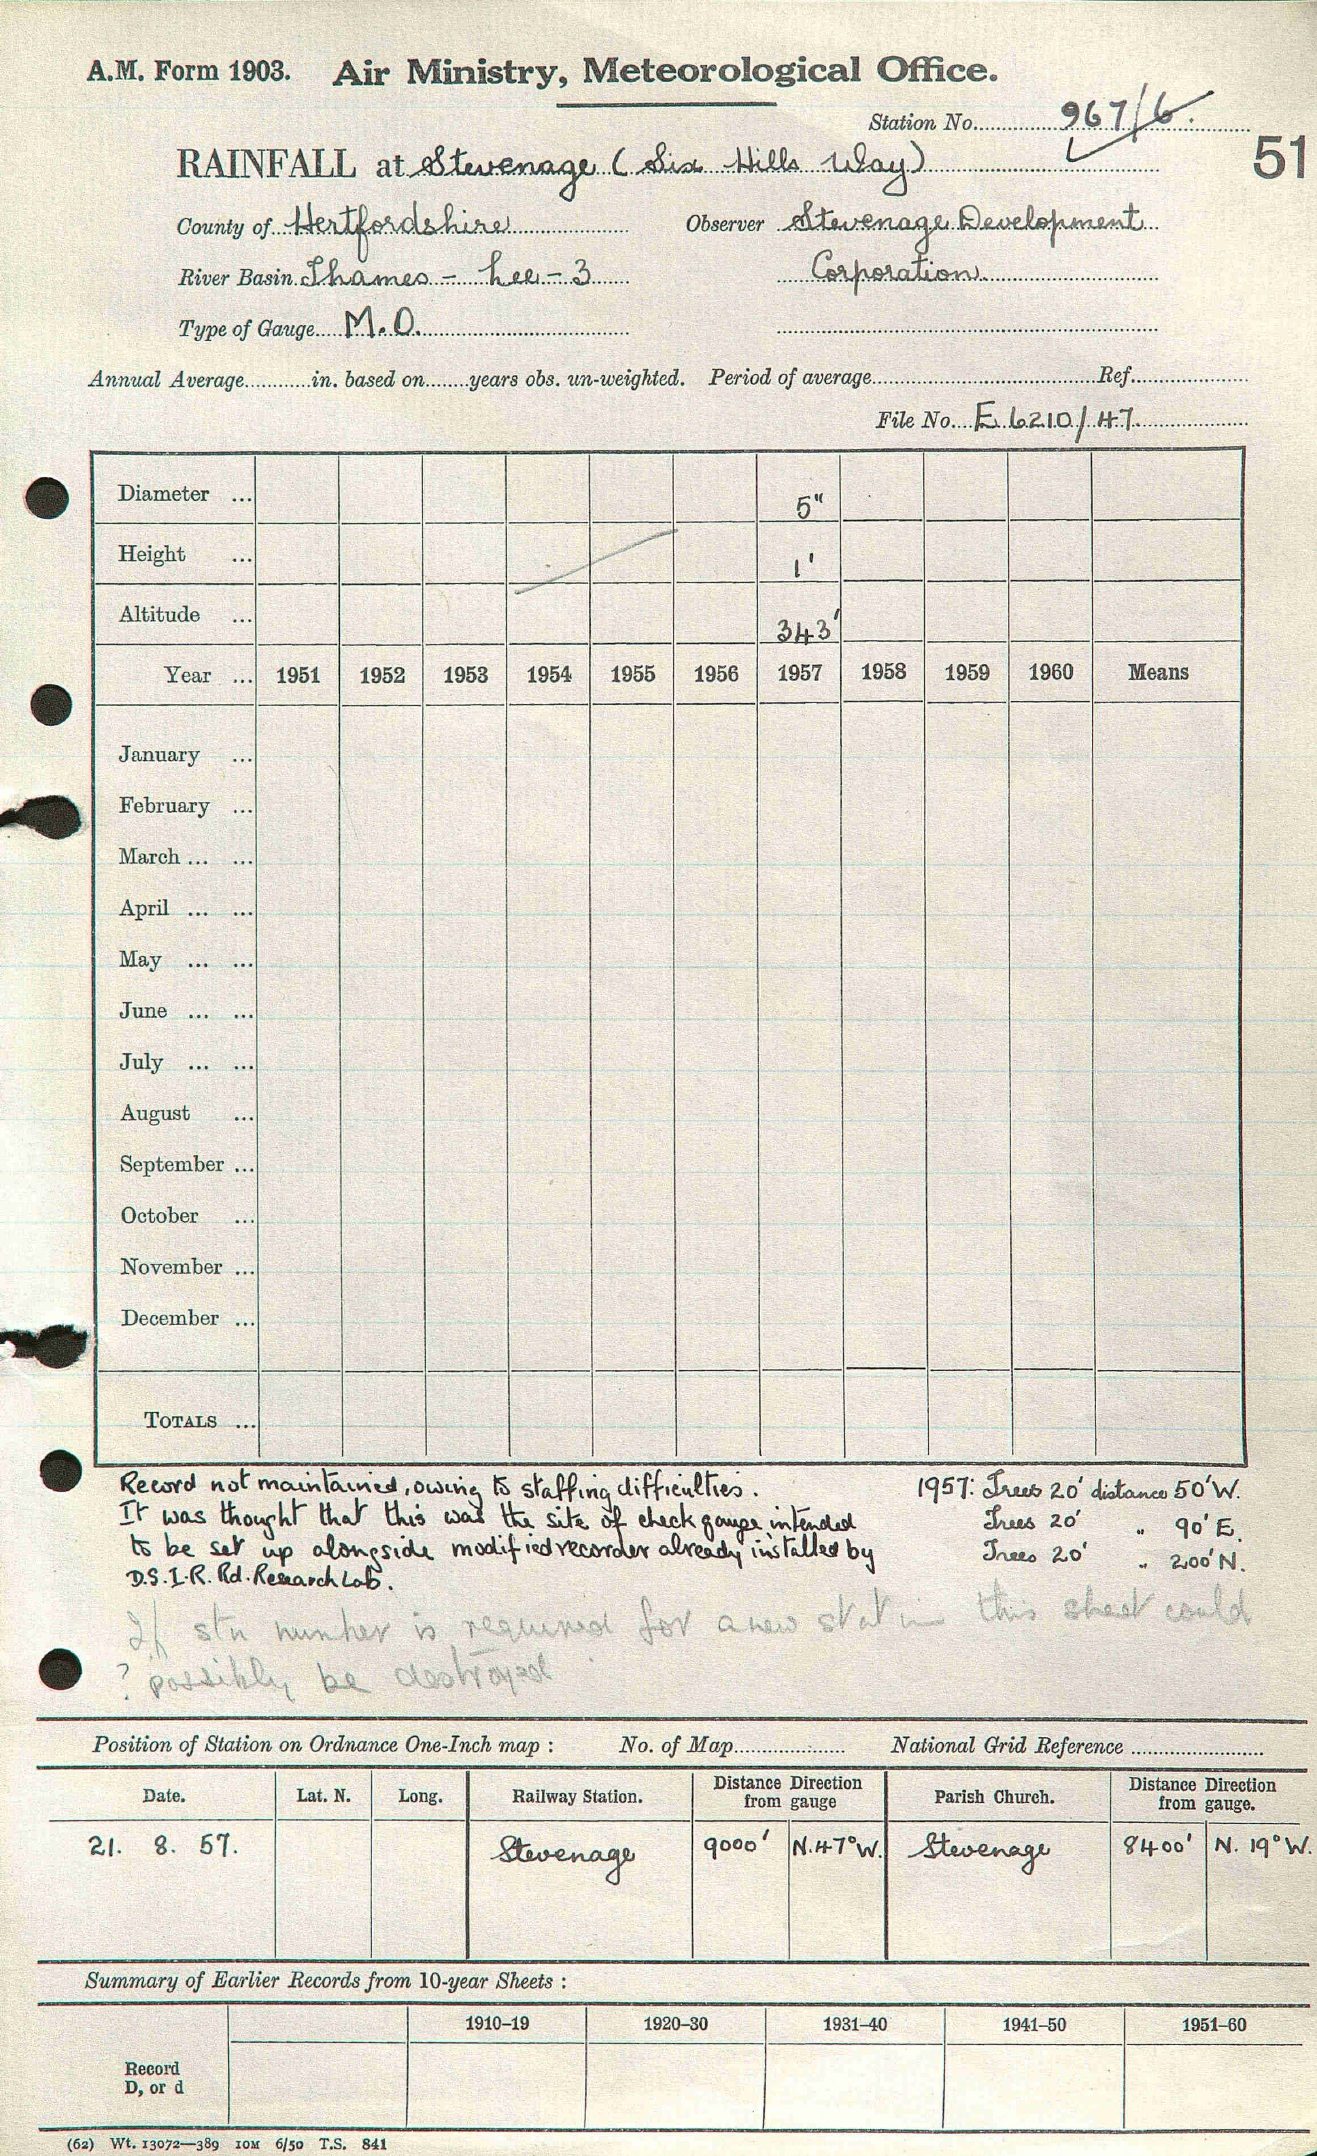 A.M. Form 1903. Air Ministry, Meteorological Office.
Station No. 967/6.
51
RAINFALL at Stevenage (Six Hills Way)
County of Hertfordshire Observer Stevenage Development
River Basin Thames - Lee - 3 Corporation
Type of Gauge M.O.
Annual Average............in. based on........years obs. un-weighted. Period of average............Ref............
File No. E 6210/47
Diameter ... 5"
Height ... 1'
Altitude ... 343'
Year ... 1951 1952 1953 1954 1955 1956 1957 1958 1959 1960 Means
January ...
February ...
March ... ...
April ... ...
May ... ...
June ... ...
July ... ...
August ...
September ...
October ...
November ...
December ...
TOTALS ...
Record not maintained, owing to staffing difficulties. 1957: Trees 20' distance 50' W.
It was thought that this was the site of check gauge intended Trees 20' " 90' E.
to be set up alongside modified recorder already installed by Trees 20' " 200' N.
D.S.I.R. Rd. Research Lab.
If stn number is required for a new station this sheet could
? possibly be destroyed.
Position of Station on Ordnance One-Inch map : No. of Map............ National Grid Reference ............
Date. Lat. N. Long. Railway Station. Distance Direction from gauge Parish Church. Distance Direction from gauge.
21. 8. 57. Stevenage 9000' N.47°W. Stevenage 8400' N. 19°W.
Summary of Earlier Records from 10-year Sheets :
1910–19 1920–30 1931–40 1941–50 1951–60
Record
D, or d
(62) Wt. 13072—389 10M 6/50 T.S. 841